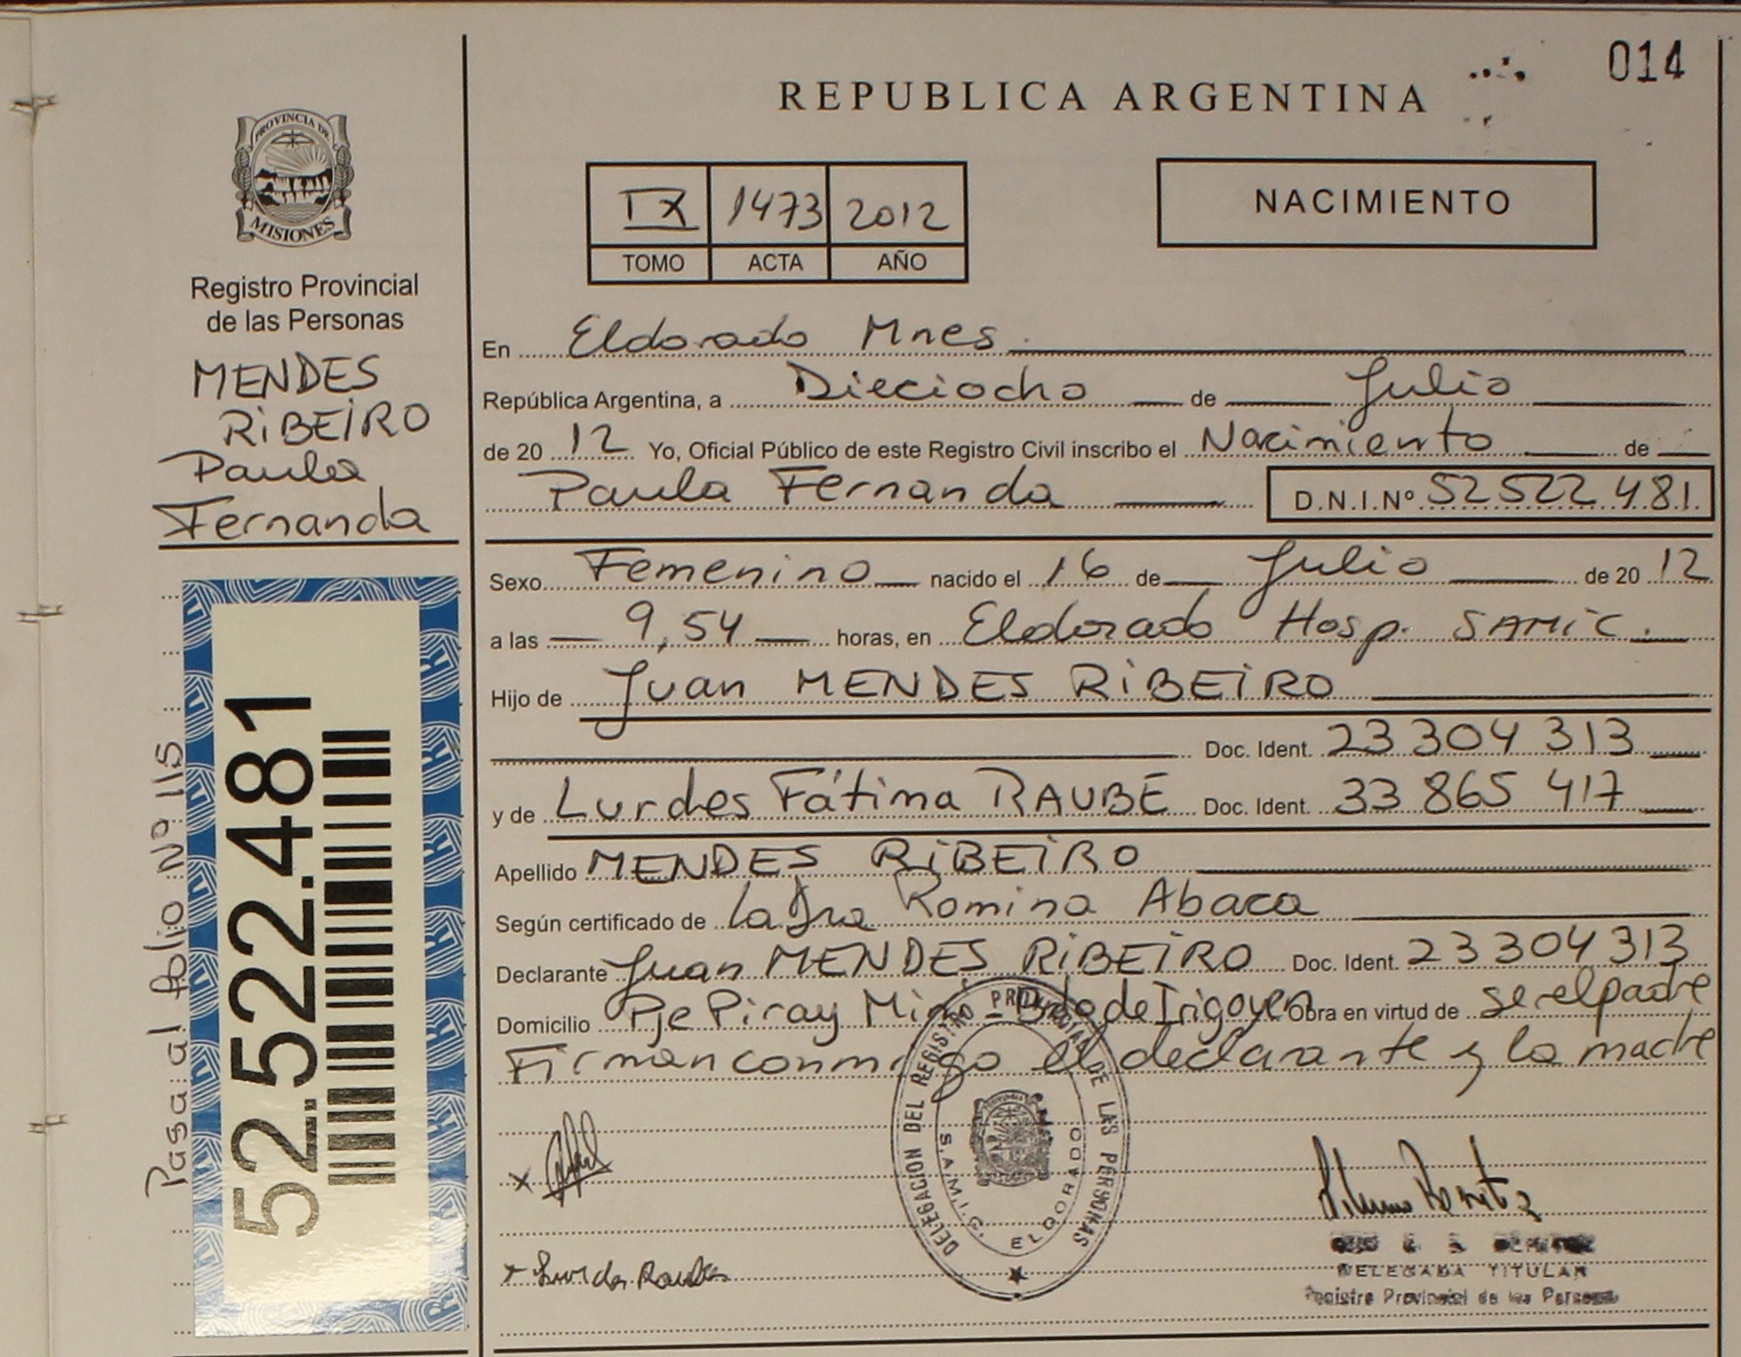 014
REPUBLICA ARGENTINA
PROVINCIA DE
MISIONES
Registro Provincial
de las Personas
MENDES
RIBEIRO
Paula
Fernanda
Pasa al folio Nº 115
52.522.481
IX 1473 2012
TOMO ACTA AÑO
NACIMIENTO
En Eldorado Mnes.
República Argentina, a Dieciocho de Julio
de 2012 Yo, Oficial Público de este Registro Civil inscribo el Nacimiento de
Paula Fernanda D.N.I.Nº 52522481.
Sexo Femenino nacido el 16 de Julio de 2012
a las 9,54 horas, en Eldorado Hosp. SAMIC.
Hijo de Juan MENDES RIBEIRO
Doc. Ident. 23 304 313
y de Lurdes Fátima RAUBE Doc. Ident. 33 865 417
Apellido MENDES RIBEIRO
Según certificado de la Dra Romina Abaca
Declarante Juan MENDES RIBEIRO Doc. Ident. 23 304 313
Domicilio Pje Piray Miní - Bdo de Irigoyen Obra en virtud de ser el padre
Firman conmigo el declarante y la madre
DELEGACION DEL REGISTRO PROVINCIAL DE LAS PERSONAS
S.A.M.I.C. ELDORADO
x
x Lurdes Raube
DELEGADA TITULAR
Registro Provincial de las Personas